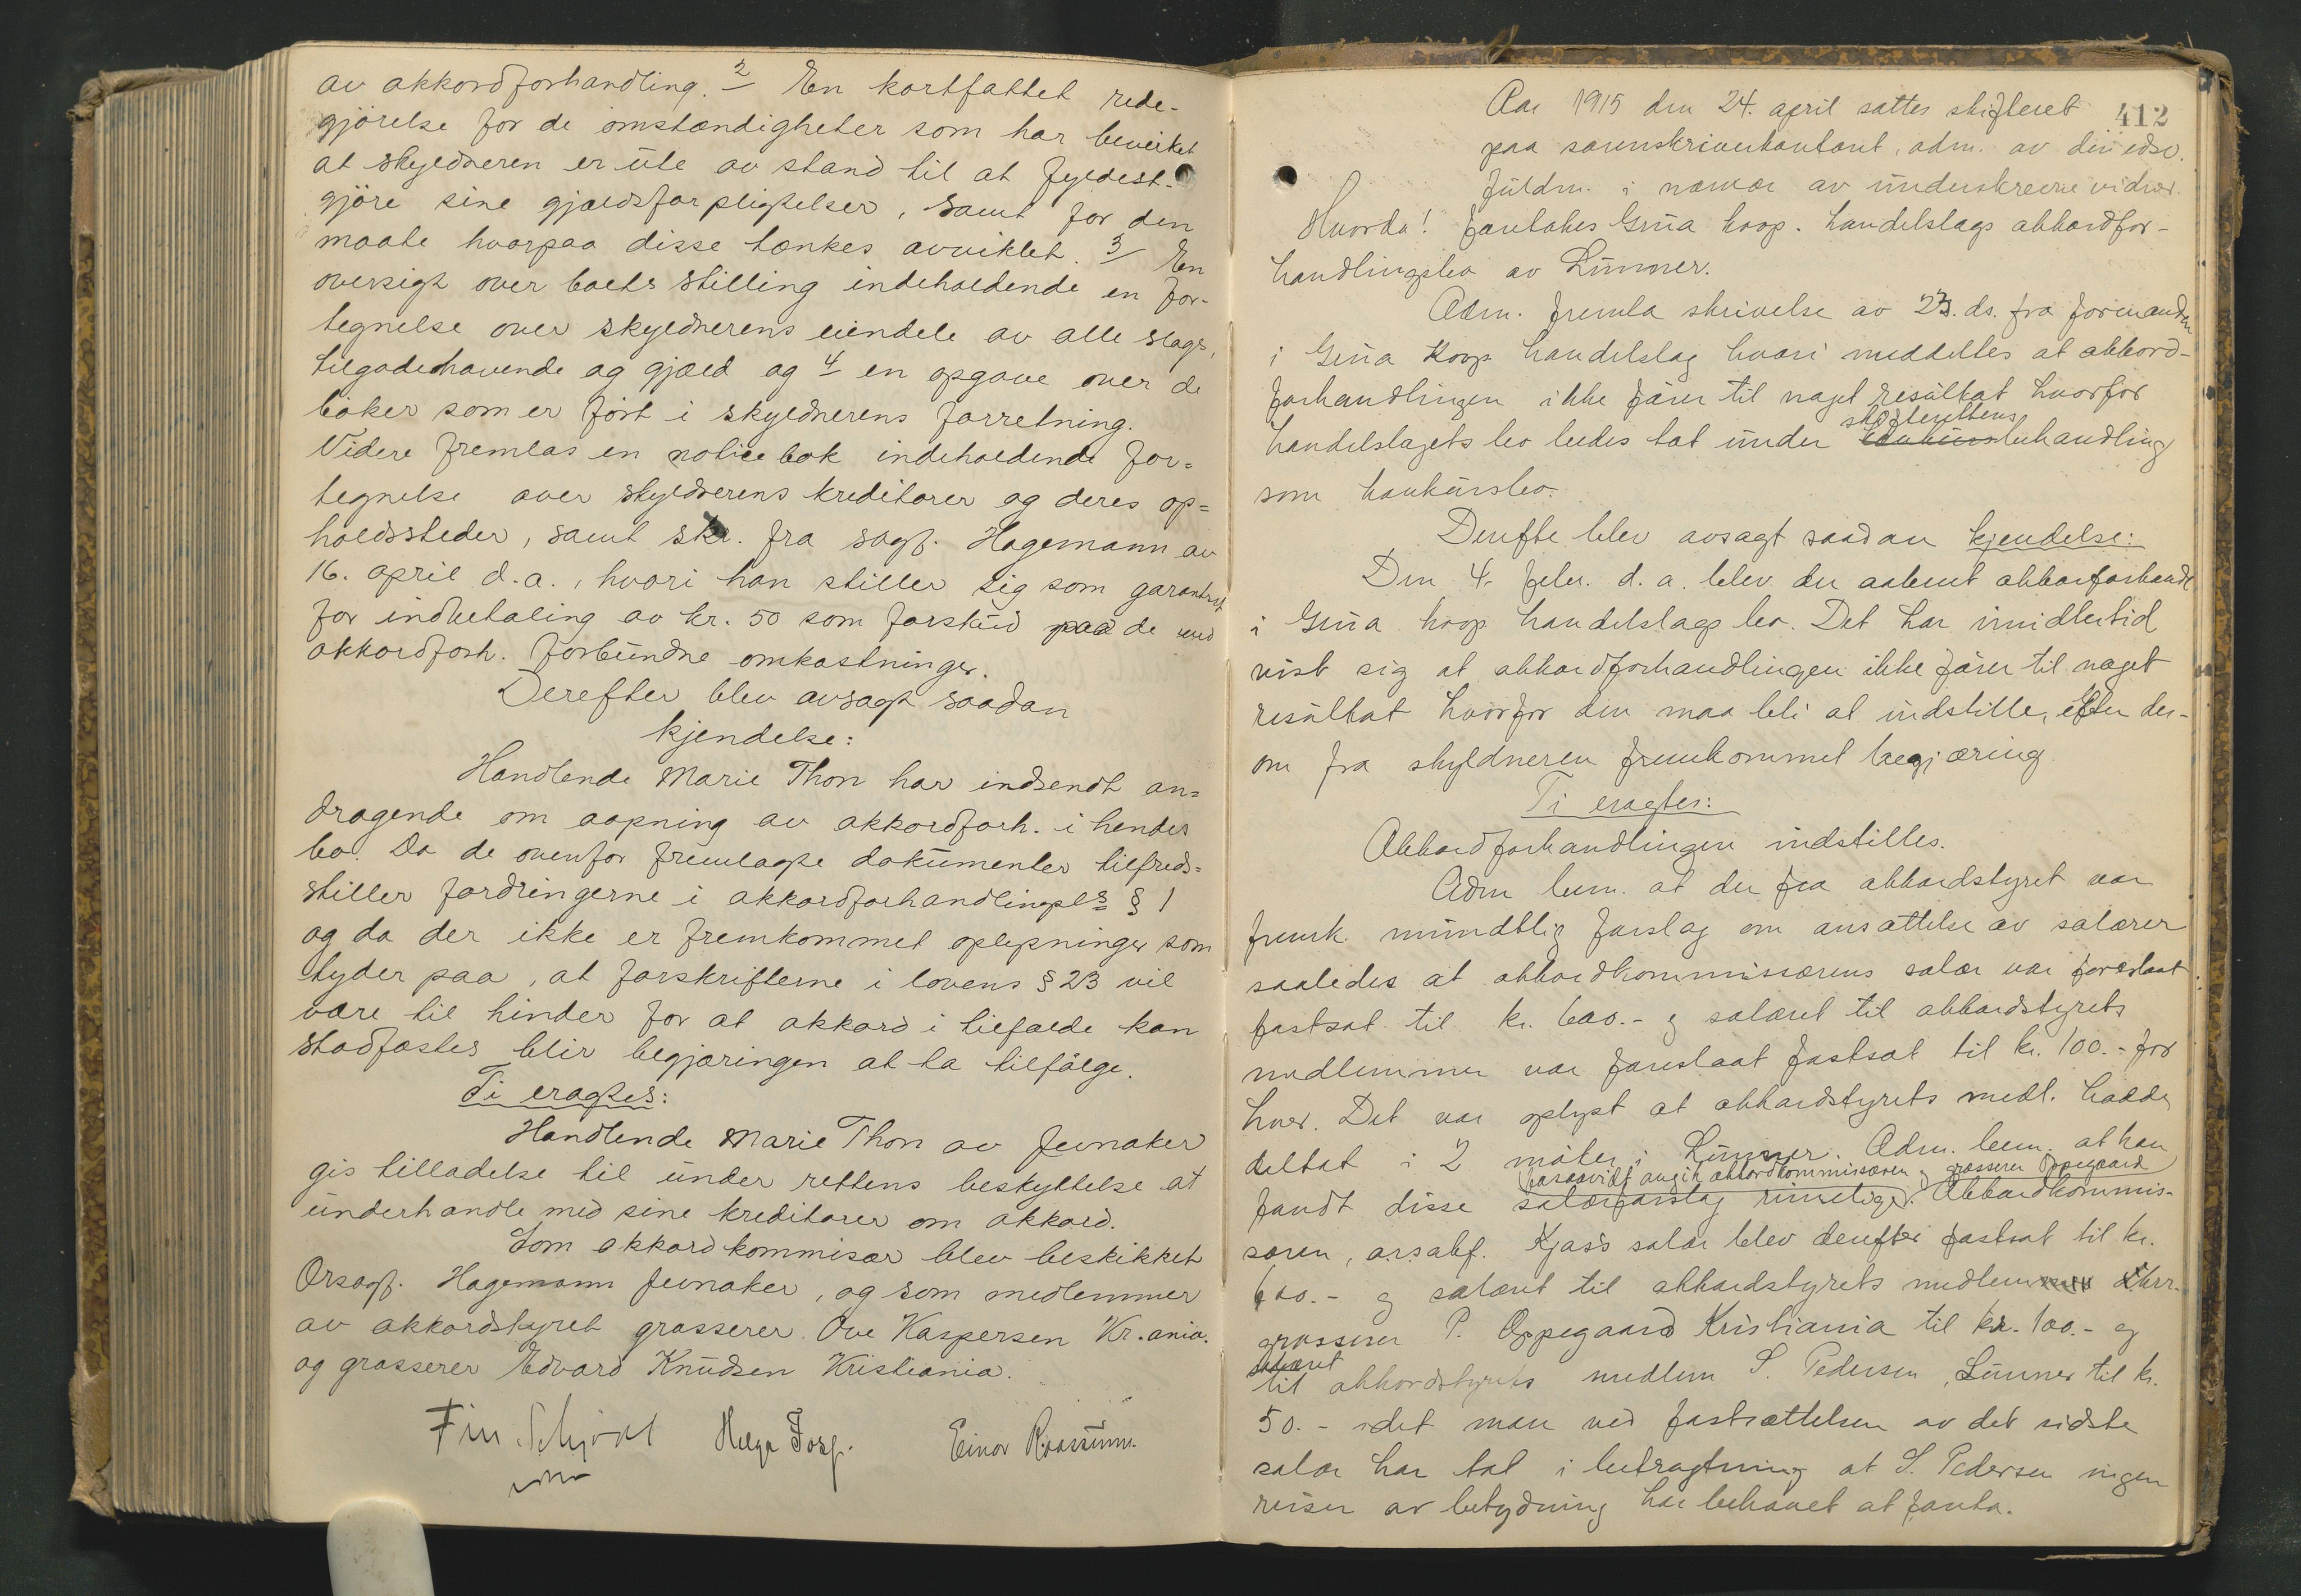 av akkordforhandling. 2/ En kortfattet rede-
gjörelse for de omstændigheter som har bevirket
at skyldneren er ute av stand til at fyldest-
gjöre sine gjældsforpligtelser, samt for den
maate hvorpaa disse tænkes avviklet. 3/ En
oversigt over boets stilling indeholdende en for-
tegnelse over skyldnerens eiendele av alle slags,
tilgodehavende og gjæld og 4/ en opgave over de
böker som er fört i skyldnerens forretning.
Videre fremlas en notice bok indeholdende for=
tegnelse over skyldnerens kreditorer og deres op=
holdssteder, samt skr. fra sagf. Hagemann av
16. april d.a., hvori han stiller sig som garantist
for indbetaling av kr. 50 som forskud paa de med
akkordforh. forbundne omkostninger.
Derefter blev avsagt saadan
kjendelse:
Handlende Marie Thon har indsendt an=
dragende om aapning av akkordforh. i hendes
bo. Da de ovenfor fremlagte dokumenter tilfreds=
stiller fordringerne i akkordforhandlingsl's § 1
og da der ikke er fremkommet oplysninger som
tyder paa, at forskrifterne i lovens § 23 vil
være til hinder for at akkord i tilfælde kan
stadfæstes blir begjæringen at ta tilfölge.
Ti eragtes:
Handlende Marie Thon av Jevnaker
gis tilladelse til under rettens beskyttelse at
underhandle med sine kreditorer om akkord.
Som akkordkommisær blev beskikket
Orsagf. Hagemann Jevnaker, og som medlemmer
av akkordstyret grosserer Ove Kaspersen Kr.ania.
og grosserer Edvard Knudsen Kristiania.
Fin. Schjödt Helge Einar Raassum.
412
Aar 1915 den 24. april sattes skifteret
paa sorenskriverkontoret, adm. av dennes edsv.
fuldm. i nærvær av underskrevne vidner.
Hvorda! foretokes Grua koop. handelslags akkordfor-
handlingsbo av Lunner.
Adm. fremla skrivelse av 23. ds. fra formanden
i Grua Koop handelslag hvori meddeltes at akkord-
forhandlingen ikke förer til noget resultat hvorfor
skifterettens
handelslagets bo bedes tat under konkursbehandling
som konkursbo.
Derefte blev avsagt saadan kjendelse:
Den 4. febr. d.a. blev der aabnet akkorforhandl
i Grua koop handelslags bo. Det har imidlertid
vist sig at akkordforhandlingen ikke förer til noget
resultat hvorfor den maa bli at indstille, efter der-
om fra skyldneren fremkommet begjæring
Ti eragtes:
Akkordforhandlingen indstilles.
Adm bem. at der fra akkordstyret var
fremk. mundtlig forslag om ansættelse av salærer
saaledes at akkordkommissærens salær var foreslaat
fastsat til kr. 600.- og salæret til akkordstyrets
medlemmer var foreslaat fastsat til kr. 100.- for
hver. Det var oplyst at akkordstyrets medl. hadde
deltat i 2 möter i Lunner. Adm. bem. at han
forsaavidt angik akkordkommissæren og grosserer Oppegaard
fandt disse salærforslag rimelige. Akkordkommis-
særen, o.r.sakf. Kjøs's salær blev derefter fastsat til kr.
600.- og salæret til akkordstyrets medlem hrr.
grosserer P. Oppegaard Kristiania til kr. 100.- og
salæret
til akkordstyrets medlem S. Pedersen, Lunner til kr.
50.- idet man ved fastsættelsen av det sidste
salær har tat i betragtning at S. Pedersen ingen
reiser av betydning har behövet at foreta.